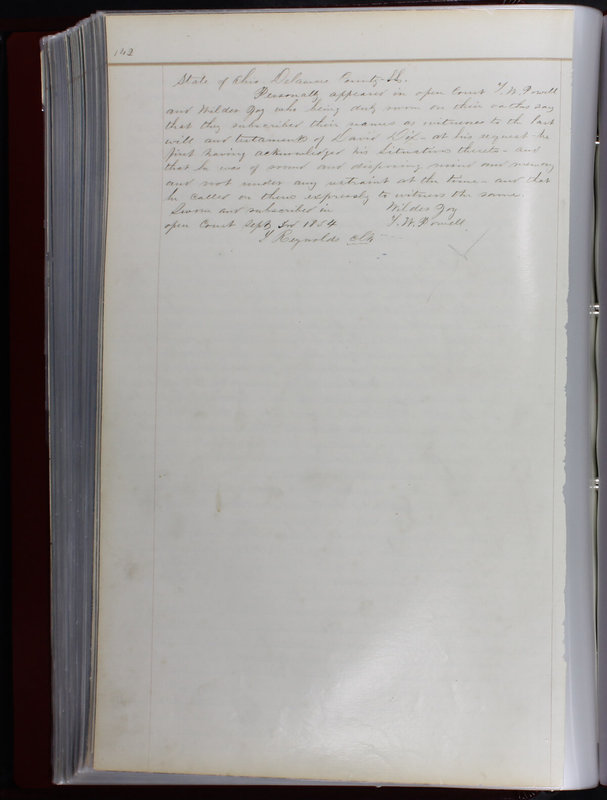 142
State of Ohio Delaware County SS.
Personally appeared in open Court T. W. Powell
and Wilder Joy who being duly sworn on their oaths say
that they subscribed their names as witnesses to the last
will and testament of David Dix at his request he
first having acknowledged his situations thereto and
that he was of sound and disposing mind and memory
and not under any restraint at the time and that
he called on them expressly to witness the same.
Sworn and subscribed in Wilder Joy
open Court Sept 1854 T. W. Powell
T Reynolds clk